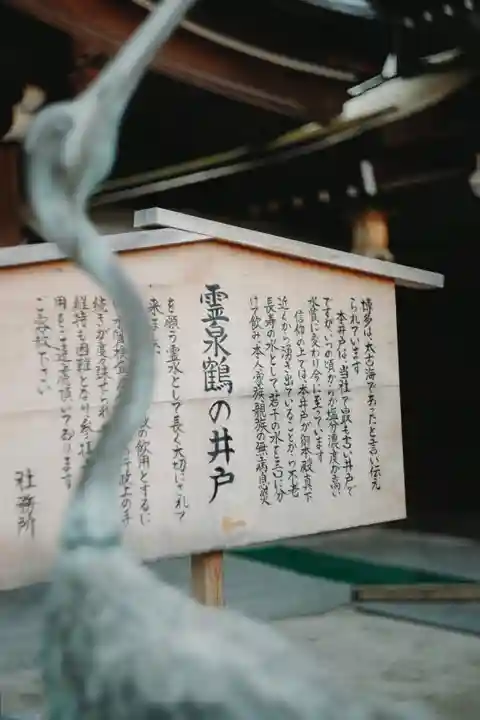 霊泉鶴の井戸
博多は、太古海であったと言い伝え
られています
本井戸は、当社で最も古い井戸で
ですが、いつの頃からか塩分濃度が高い
水質に変わり今に至っています
信仰の上では、本井戸が御本殿真下
近くから湧き出ていることから不老
長寿の水として若干の水を三口に分
けて飲み本人家族親族の無病息災
を願う霊水として長く大切にされて
来ました
水質検査
の飲用とするに
政上の手
続きが度重ねられ
維持も困難となり
用をご遠慮頂いております
ご容赦下さい
社務所